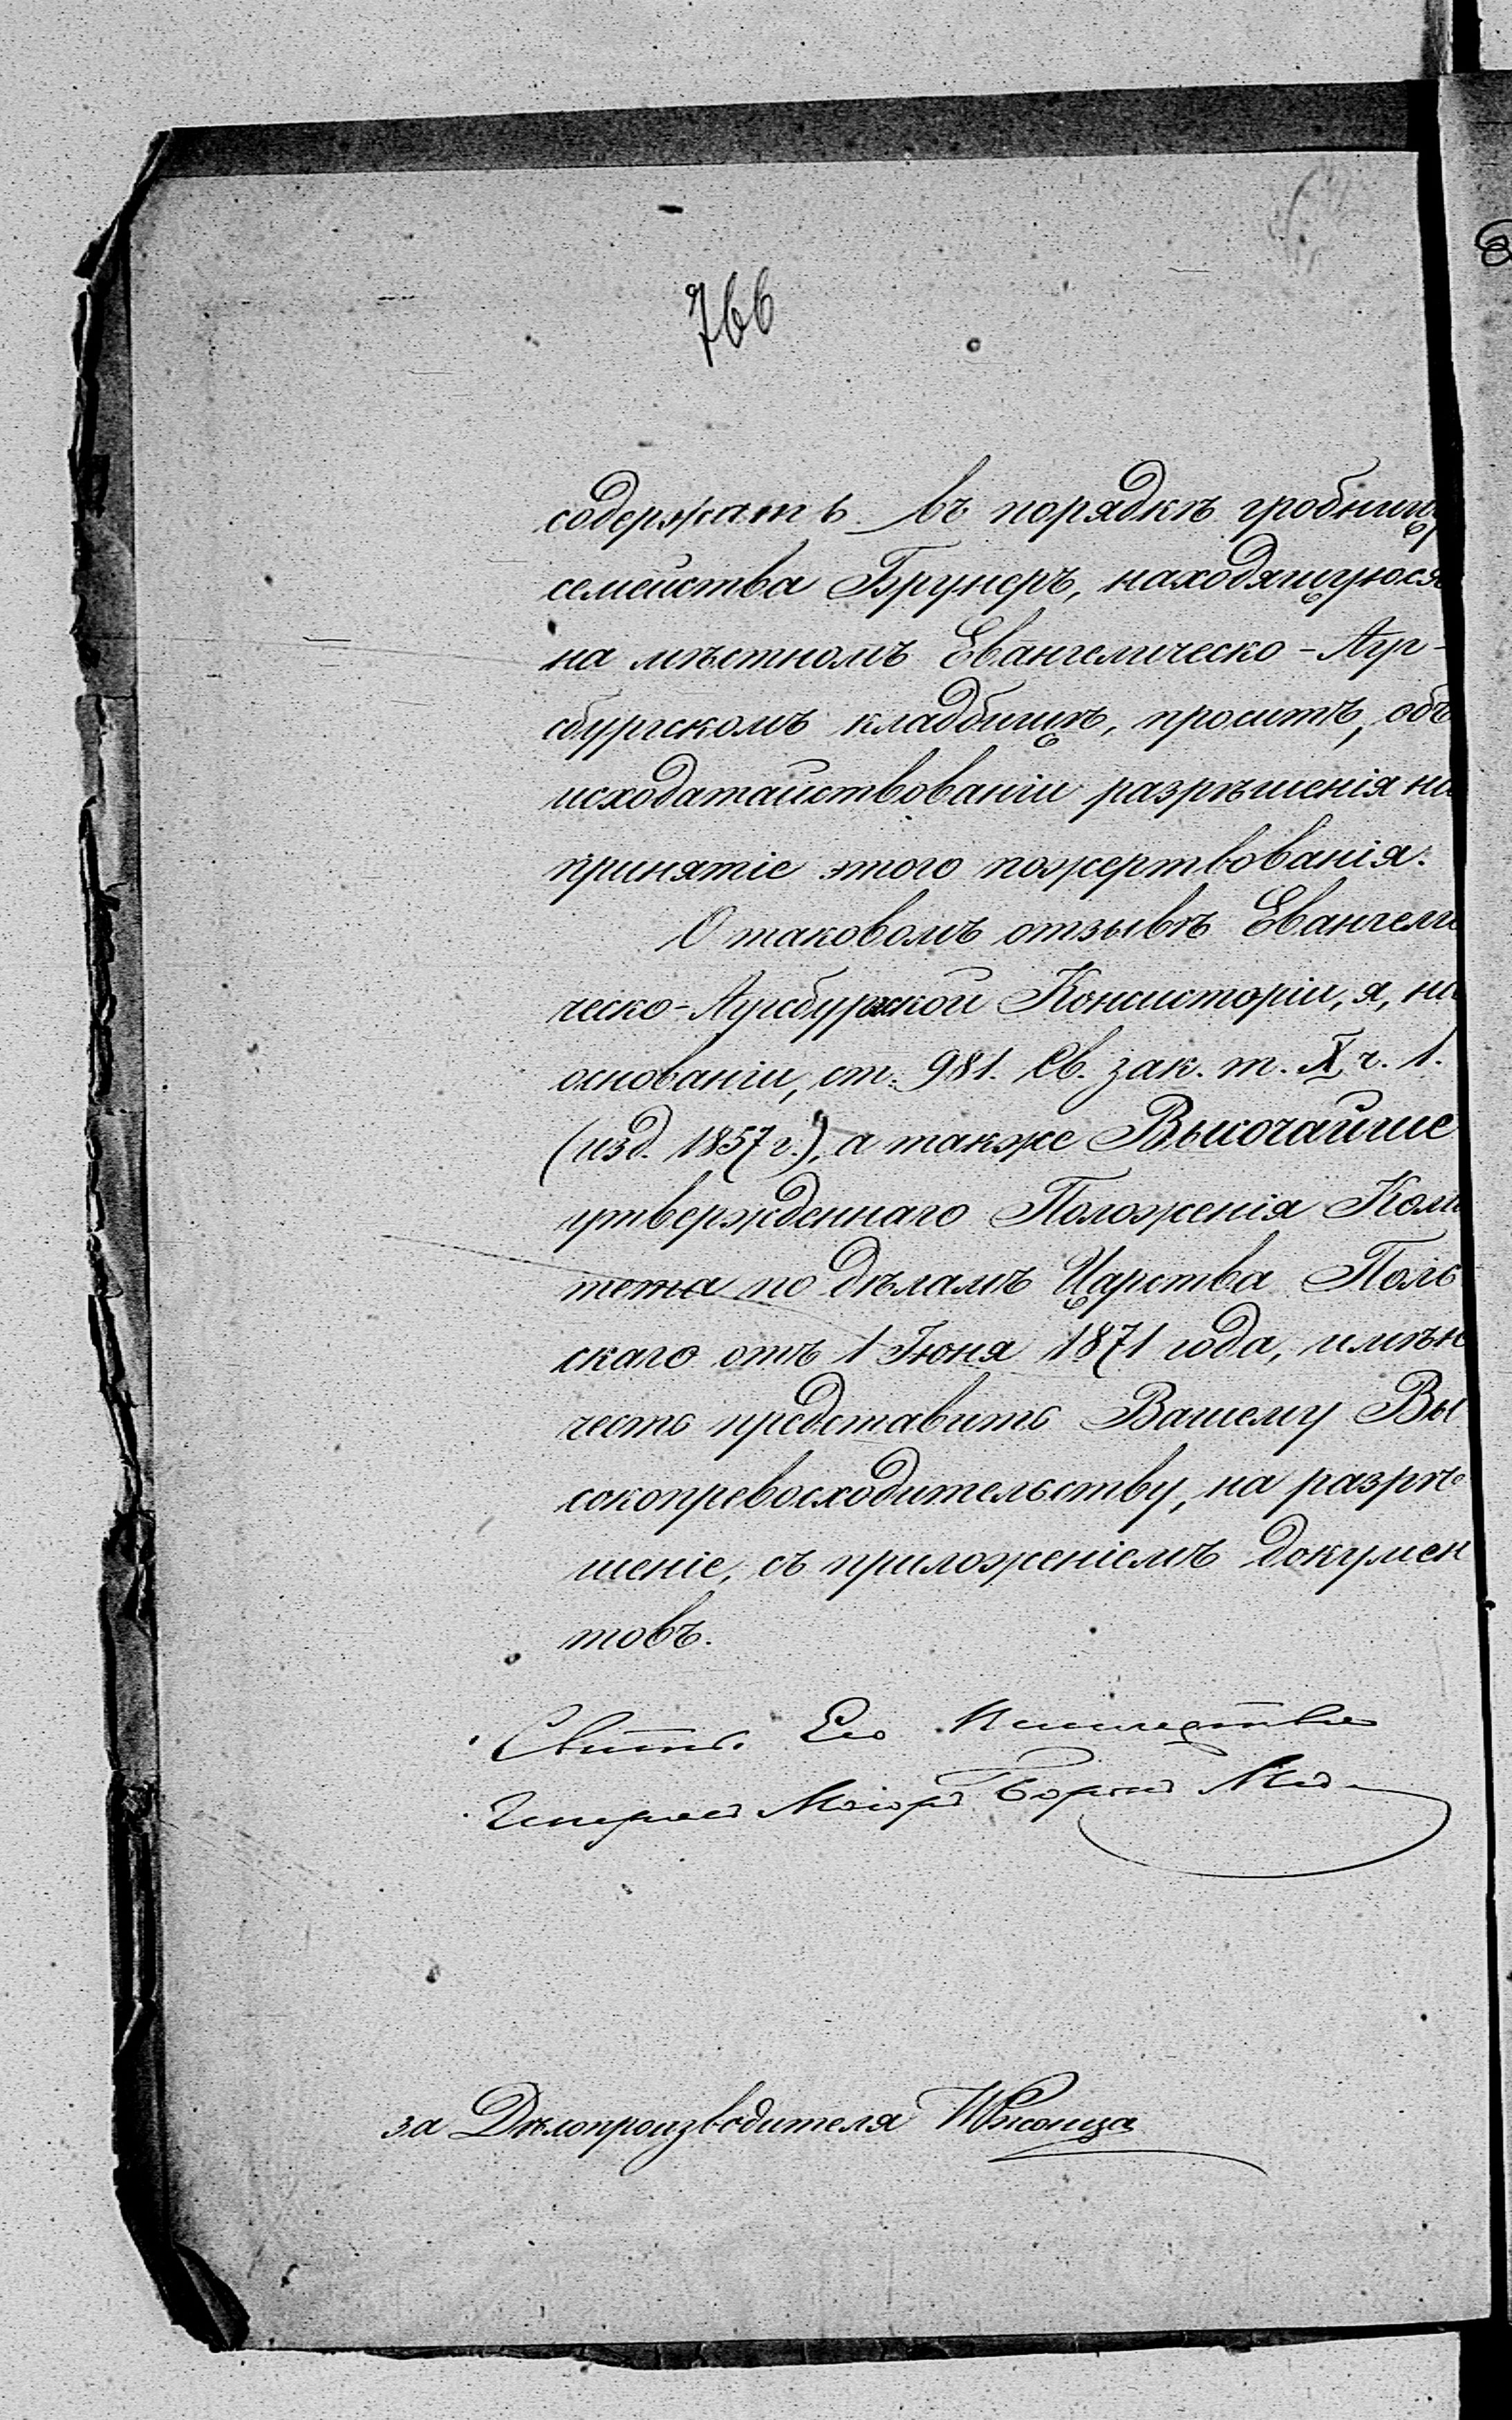 766
содержать въ порядкѣ гробниц
семейства Брунеръ, находящуюся
на мѣстномъ Евангелическо-Ауг-
сбургскомъ кладбищѣ, проситъ, объ
исходатайствованіи разрѣшенія на
принятіе этого пожертвованія.
О таковомъ отзывѣ Евангели
ческо-Аугсбургской Консисторіи, я, на
основаніи, ст. 981. Св. зак. т. X ч. 1.
(изд. 1857 г.), а также Высочайше
утвержденнаго Положенія Коми
тета по дѣламъ Царства Поль
скаго отъ 1 Іюня 1871 года, имѣю
честь представить Вашему Вы
сокопревосходительству, на разрѣ
шеніе, съ приложеніемъ докумен
товъ.
Свиты Его Величества
Генералъ Маіоръ Баронъ Мед
за Дѣлопроизводителя